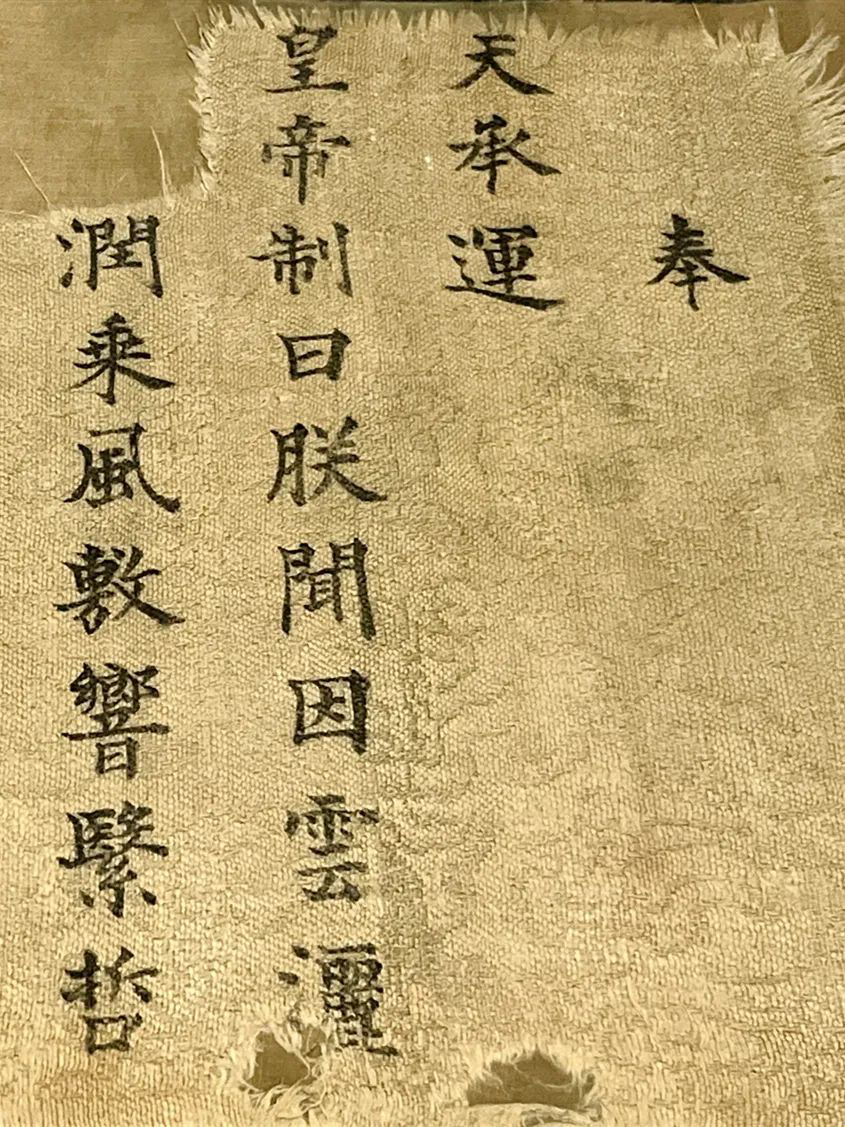 奉
天承運
皇帝制曰朕聞因雲灑
潤乘風敷響繄哲